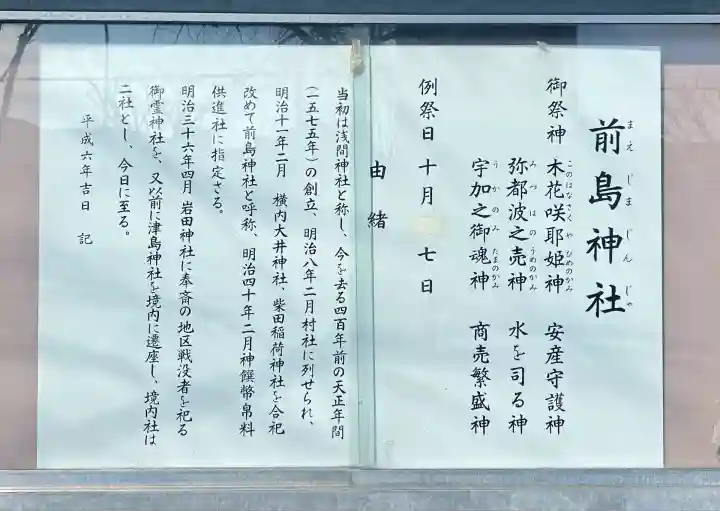 前島神社
まえじまじんじゃ
御祭神 木花咲耶姫神 安産守護神
このはなさくやひめのかみ
弥都波之売神 水を司る神
みつはのうめのかみ
宇加之御魂神 商売繁盛神
うかのみたまのかみ
例祭日 十月 七日
由緒
当初は浅間神社と称し、今を去る四百年前の天正年間
(一五七五年)の創立、明治八年二月村社に列せられ、
明治十一年二月 横内大井神社、柴田稲荷神社を合祀
改めて前島神社と呼称、明治四十年二月神饌幣帛料
供進社に指定さる。
明治三十六年四月 岩田神社に奉斎の地区戦没者を祀る
御霊神社を、又以前に津島神社を境内に遷座し、境内社は
二社とし、今日に至る。
平成六年吉日 記